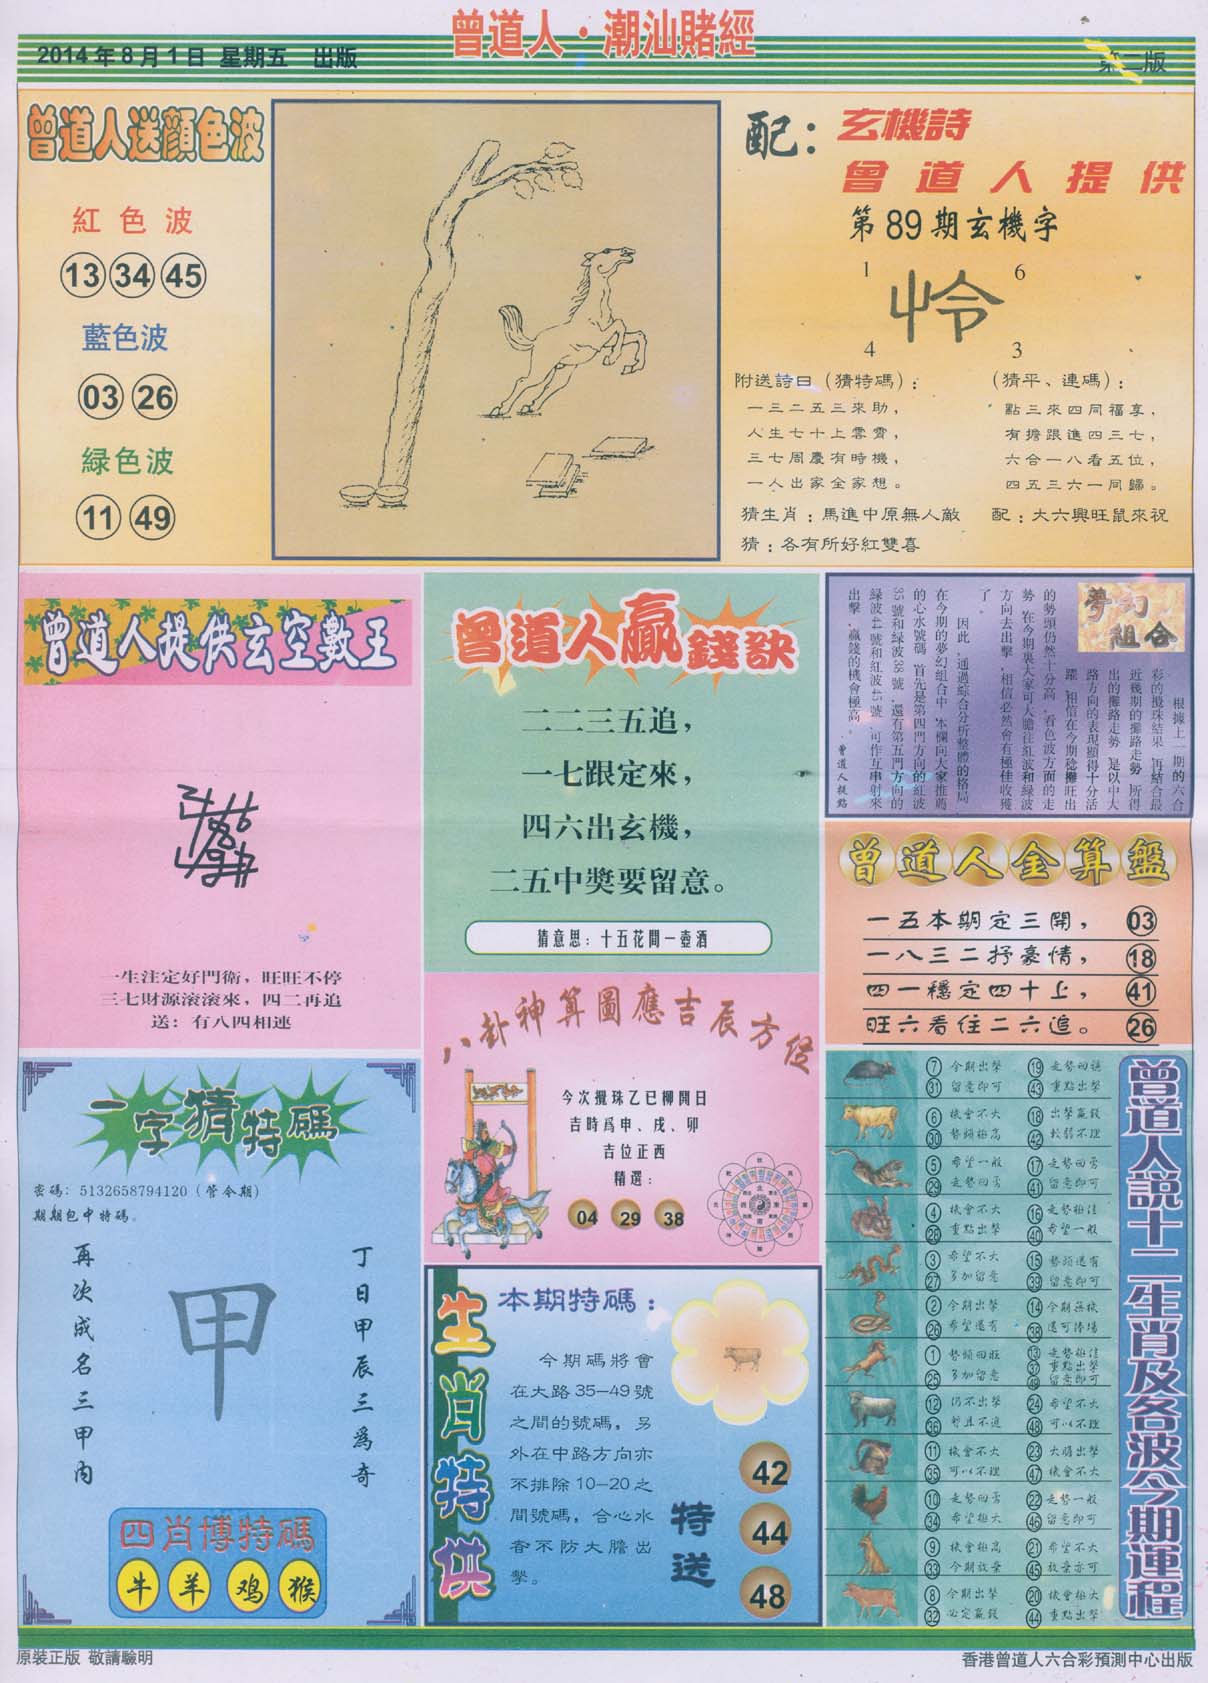 曾道人·潮汕賭經
2014年8月1日 星期五 出版
第二版
曾道人送顔色波
紅色波
13 34 45
藍色波
03 26
緑色波
11 49
配：
玄機詩
曾道人提供
第89期玄機字
1 6
怜
4 3
附送詩曰（猜特碼）：
一三二五三來助，
人生七十上雲霄，
三七周慶有時機，
一人出家全家想。
（猜平、連碼）：
點三來四同福享，
有擔跟進四三七，
六合一八看五位，
四五三六一同歸。
猜生肖：馬進中原無人敵
配：大六興旺鼠來祝
猜：各有所好紅雙喜
曾道人提供玄空數王
一生注定好門衛，旺旺不停
三七財源滾滾來，四二再追
送：有八四相連
曾道人贏錢訣
二二三五追，
一七跟定來，
四六出玄機，
二五中獎要留意。
猜意思：十五花間一壺酒
夢幻組合
根據上一期的六合
彩的攪珠結果，再結合最
近幾期的攤路走勢，所得
出的攤路走勢，是以中大
路方向的表現顯得十分活
躍，相信在今期稔攤旺出
的勢頭仍然十分高，看色波方面的走
勢，在今期裏大家可大膽往紅波和綠波
方向去出擊，相信必然會有極佳收獲
了。
因此，通過綜合分析整體的格局，
在今期的夢幻組合中，本欄向大家推薦
的心水號碼，首先是第四門方向的紅波
35號和綠波38號，還有第五門方向的
綠波44號和紅波45號，可作互串射來
出擊，贏錢的機會極高。
曾道人提點
曾道人金算盤
一五本期定三開， 03
一八三二抒豪情， 18
四一穩定四十上， 41
旺六看住二六追。 26
八卦神算圖應吉辰方從
今次攪珠乙巳柳開日
吉時爲申、戌、卯
吉位正西
精選：
04 29 38
一字猜特碼
密碼：5132658794120（管令期）
期期包中特碼。
丁日甲辰三爲奇
甲
再次成名三甲内
四肖博特碼
牛 羊 鸡 猴
生肖特供
本期特碼：
今期碼將會
在大路35—49號
之間的號碼，另
外在中路方向亦
不排除10—20之
間號碼，合心水
者不防大膽出
擊。
特送
42
44
48
曾道人説十二生肖及各波今期運程
7 今期出擊 19 走勢回穩
31 留意即可 43 重點出擊
6 機會不大 18 出擊贏錢
30 勢頭極高 42 較弱不理
5 希望一般 17 走勢回勇
29 走勢回勇 41 留意即可
4 機會不大 16 走勢極佳
28 重點出擊 40 希望一般
3 希望不大 15 勢頭還有
27 多加留意 39 留意即可
2 今期出擊 14 今期無機
26 希望還有 38 還可捧場
1 勢頭回旺 13 走勢極佳
25 多加留意 37 重點出擊
49 留意即可
12 仍不出擊 24 希望不大
36 暫且不追 48 可以不理
11 機會不大 23 大膽出擊
35 可以不理 47 機會不大
10 走勢回勇 22 走勢一般
34 希望極大 46 留意即可
9 機會極高 21 希望不大
33 今期放棄 45 放棄亦可
8 今期出擊 20 機會極大
32 必定贏錢 44 重點出擊
原裝正版 敬請驗明
香港曾道人六合彩預測中心出版